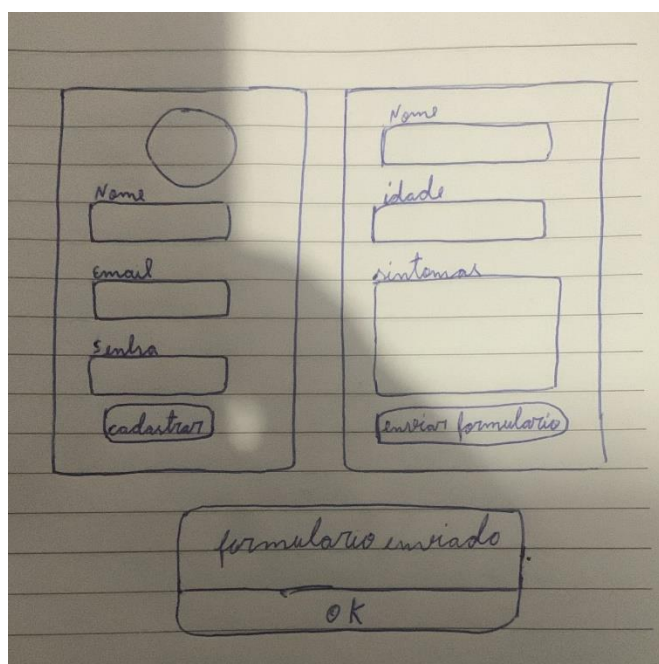 Nome
Email
Senha
cadastrar
Nome
idade
sintomas
enviar formulario
formulario enviado
OK